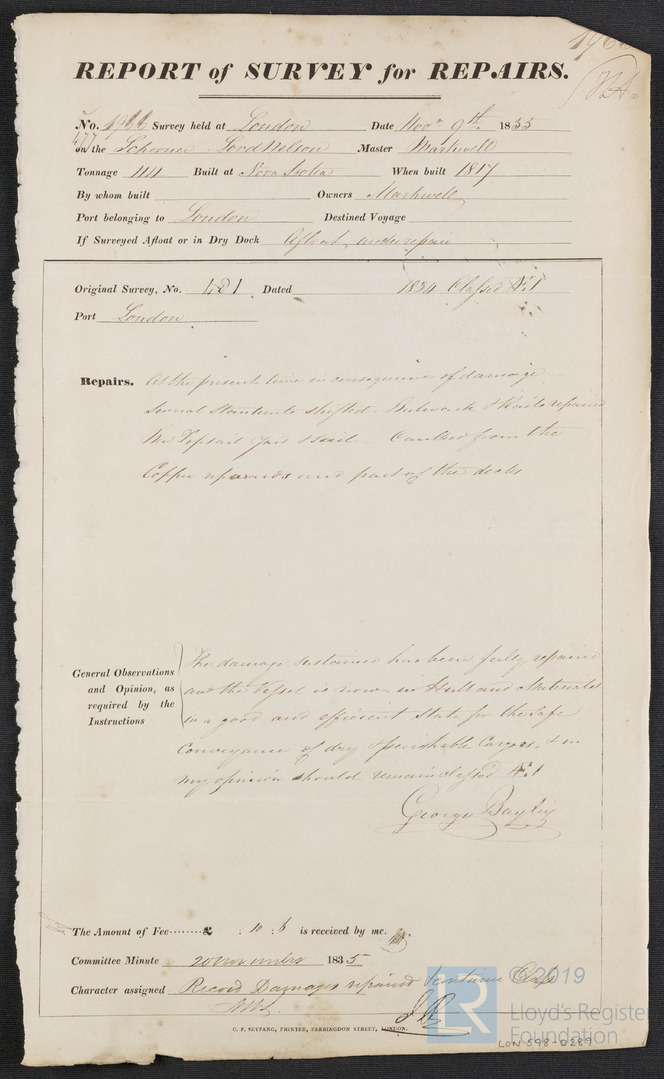 1966
REPORT of SURVEY for REPAIRS.
No. 1966 Survey held at London Date Novr 9th. 1835
477
on the Schooner Lord Nelson Master Markwell
Tonnage 114 Built at Nova Scotia When built 1817
By whom built Owners Markwell
Port belonging to London Destined Voyage
If Surveyed Afloat or in Dry Dock Afloat under repair
Original Survey, No. 481 Dated 1834 Classed Æ1
Port London
Repairs. At the present time in consequence of damage
Several Stanchions shifted. Bulwark & Rails repaired
New Topsail Yard & Sail Caulked from the
Copper upwards and part of the decks
General Observations and Opinion, as required by the Instructions
The damage sustained has been fully repaired
and the Vessel is now in Hull and Materials
in a good and efficient state for the safe
Conveyance of dry & perishable Cargoes, & in
my opinion should remain classed Æ1
George Bayley
The Amount of Fee........£ : 10 : 6 is received by me.
Committee Minute 20 November 1835
Character assigned Record Damages repaired Continue Class
C. F. SEYFANG, PRINTER, FARRINGDON STREET, LONDON.
© 2019
LR
Lloyd's Register
Foundation
LON 598-0289